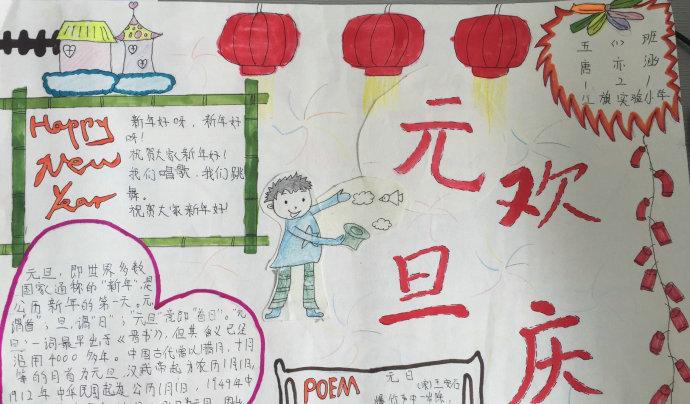 Happy
New
Year
新年好呀，新年好
呀！
祝贺大家新年好！
我们唱歌，我们跳
舞。
祝贺大家新年好！
元旦
欢庆
五（2）班
唐亦涵
实验小学
元旦，即世界多数
国家通称的"新年"，是
公历新年的第一天。元，
谓"首"；旦，谓"日"；"元旦"意即"首日"。"元
旦"一词最早出于《晋书》，但其含义已经
沿用4000多年。中国古代曾以腊月、十月
等的月首为元旦，汉武帝起为农历1月1日，
1912年中华民国起为公历1月1日，1949年中
POEM
元日